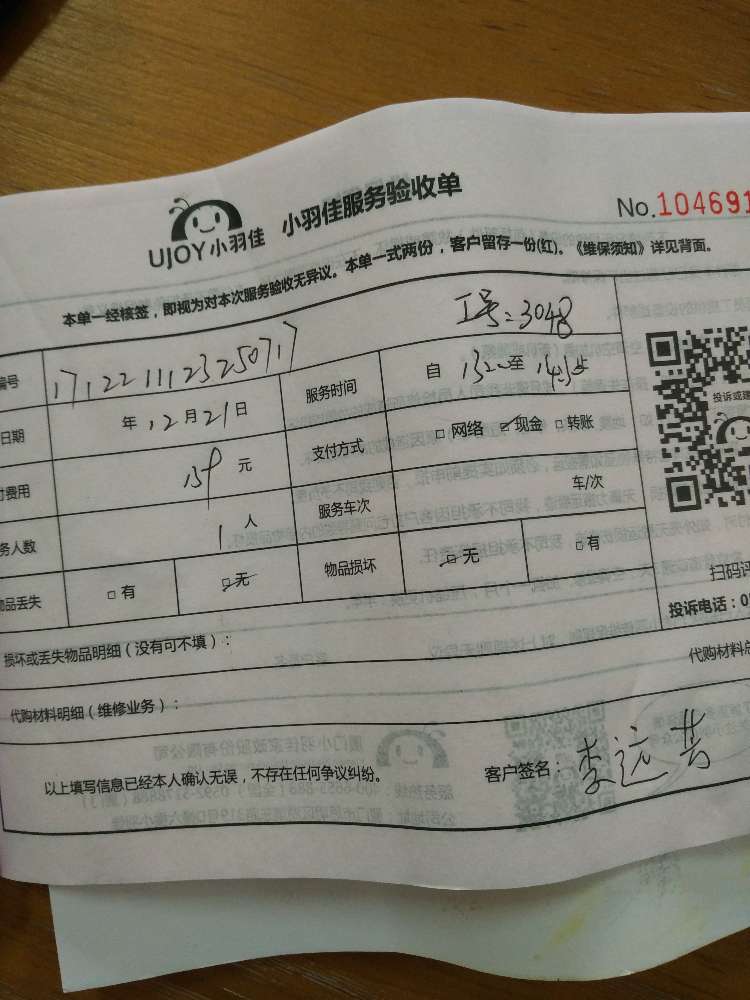 UJOY小羽佳 小羽佳服务验收单
No.104691
本单一经核签，即视为对本次服务验收无异议。本单一式两份，客户留存一份(红)。《维保须知》详见背面。
工号：3048
编号 1712211123250717 服务时间 自 1320至
日期 年 12月21日 支付方式 □ 网络 ☑ 现金 □ 转账
费用 159 元 服务车次 车/次
务人数 1 人
品丢失 □ 有 ☑ 无 物品损坏 ☑ 无 □ 有
投诉或建
扫码评
投诉电话：05
损坏或丢失物品明细（没有可不填）：
代购材料总
代购材料明细（维修业务）：
以上填写信息已经本人确认无误，不存在任何争议纠纷。 客户签名：李远